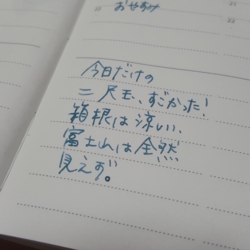 今日だけの
二尺玉、すごかった!
箱根は涼しい、
富士山は全然
見えず。